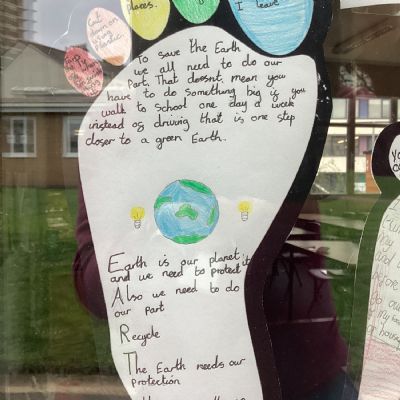 places.
I leave
Cut
down on
using
plastic.
To save the Earth
we all need to do our
Part. That doesnt mean you
have to do something big if you
walk to school one day a week
instead of driving that is one step
closer to a green Earth.
Earth is our planet
and we need to protect it
Also we need to do
our part
Recycle
The Earth needs our
Protection